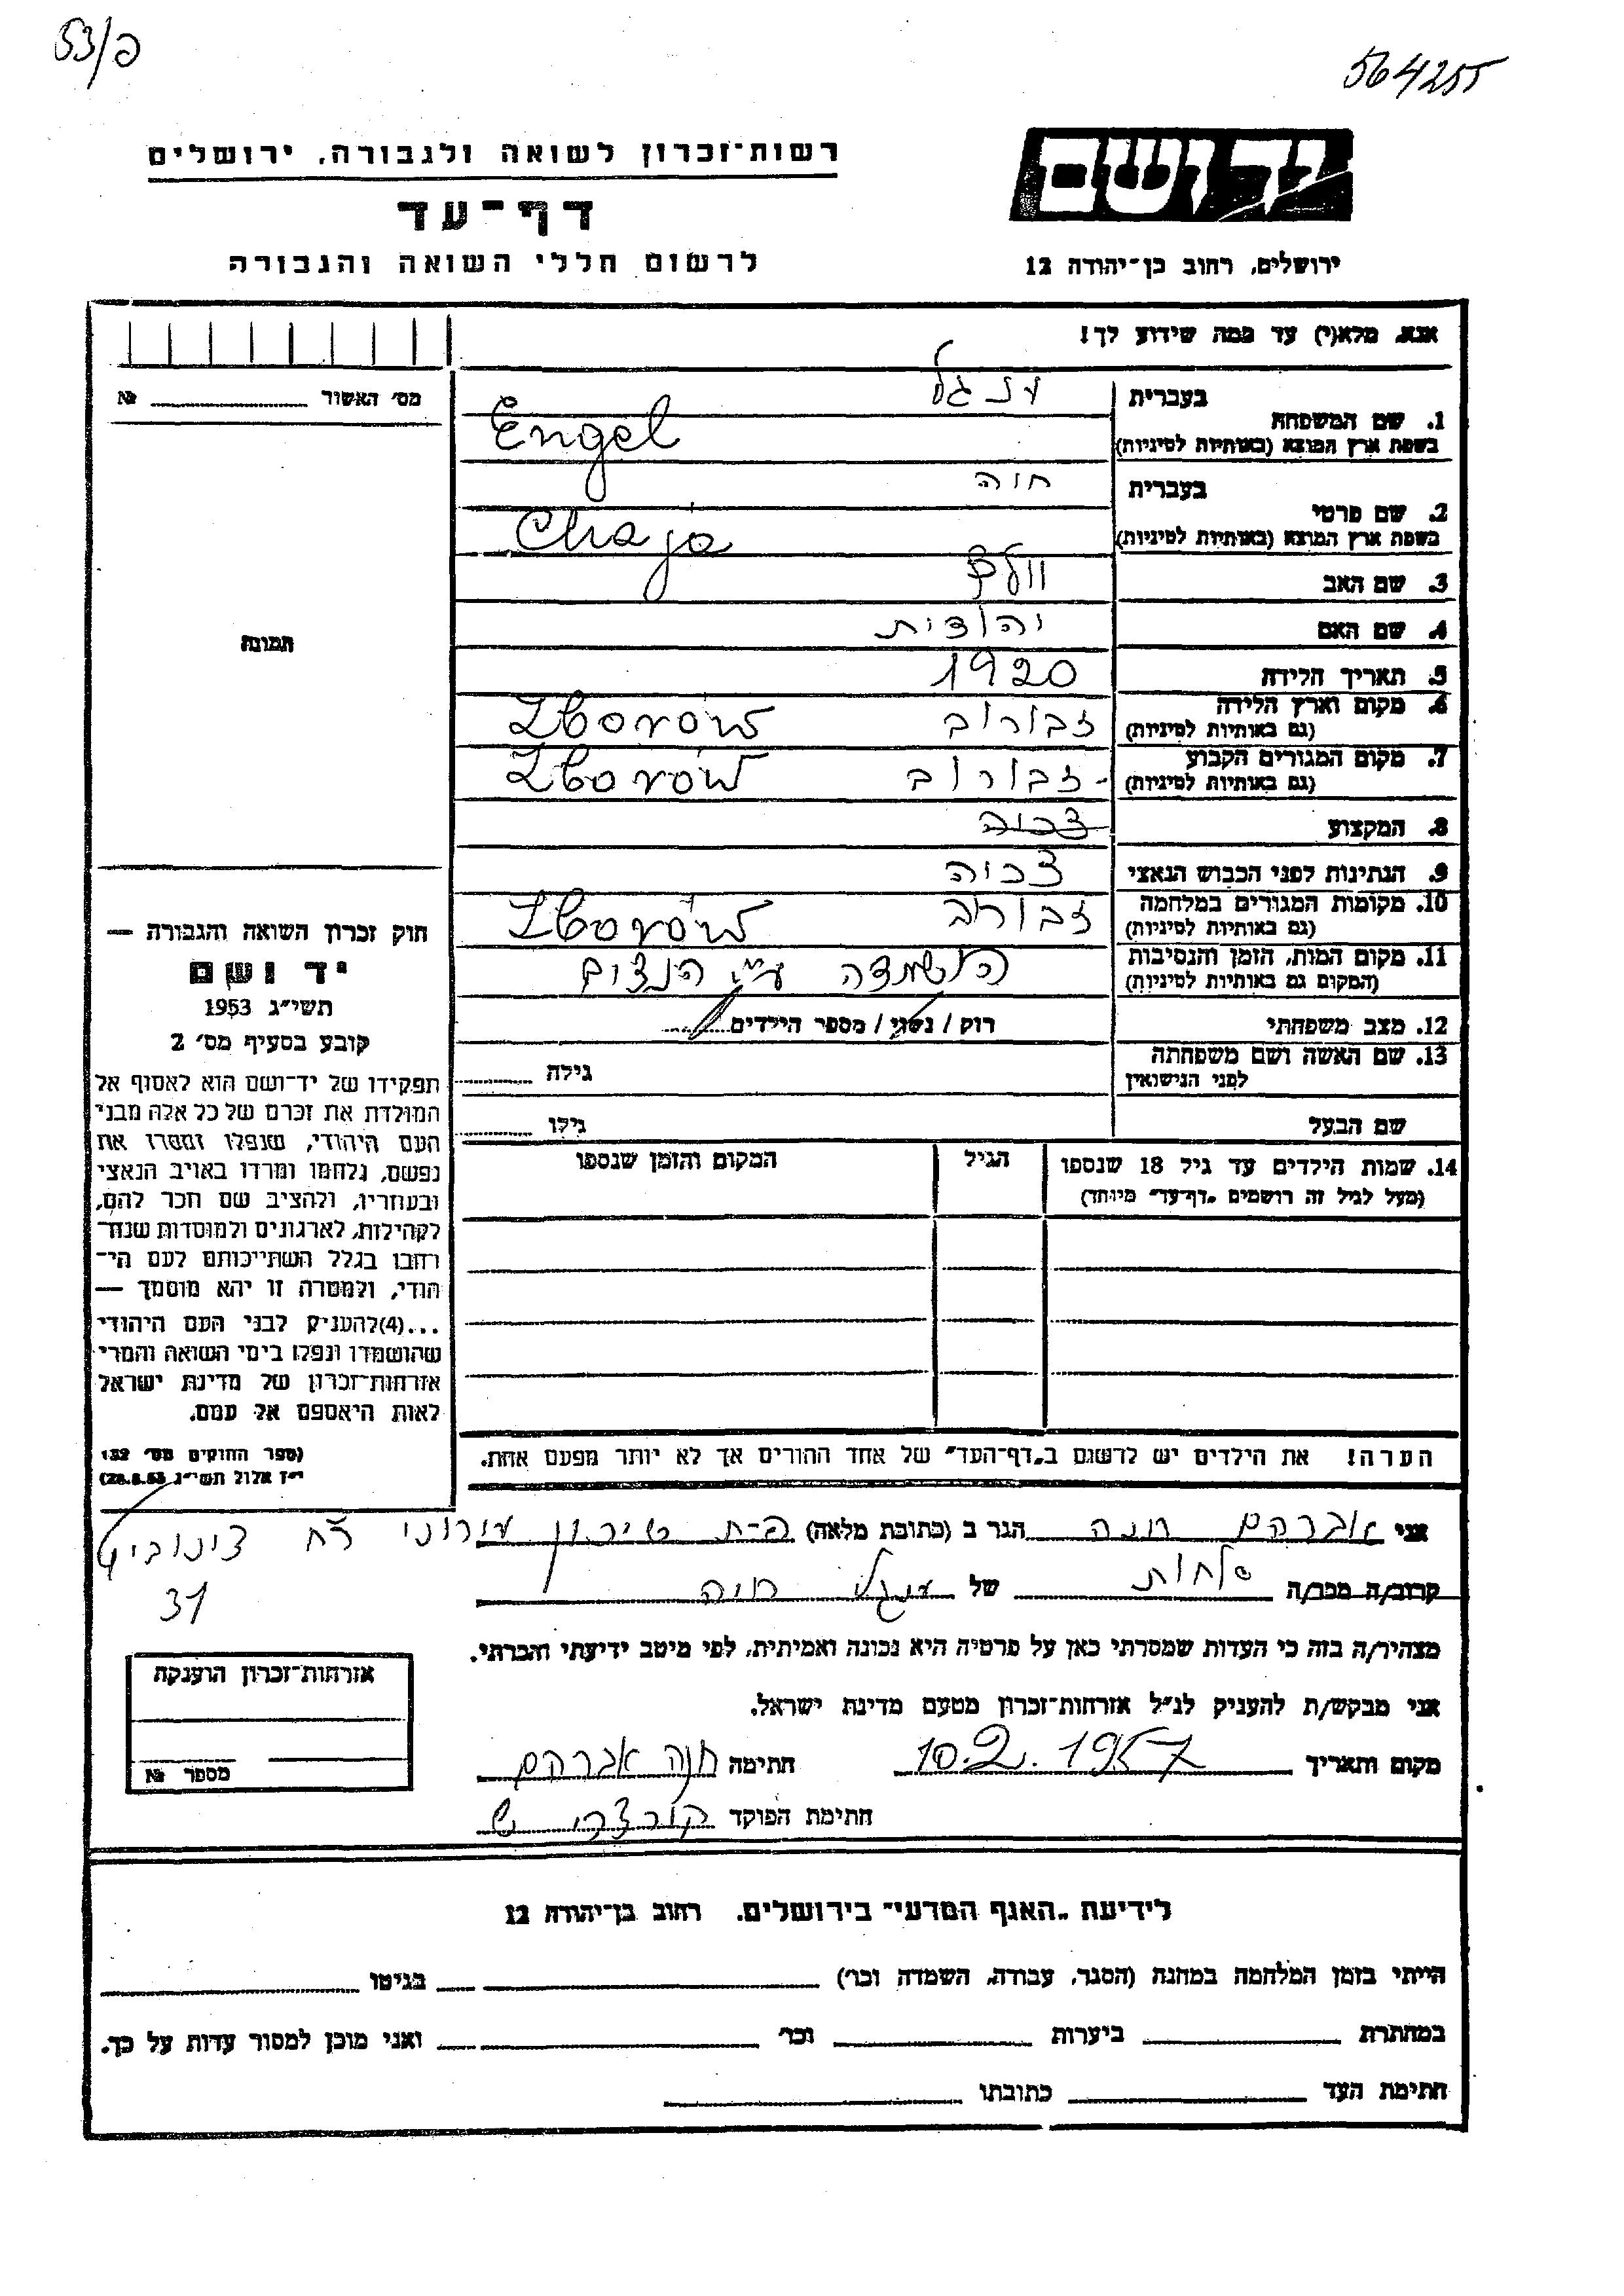 53/פ
564255
רשות-זכרון לשואה ולגבורה, ירושלים
דף-עד
לרשום חללי השואה והגבורה
יד ושם
ירושלים, רחוב בן-יהודה 12
אנא, מלא(י) עד כמה שידוע לך!
מס׳ האשור № 
תמונה
1. שם המשפחה בעברית ענגל
בשפת ארץ המוצא (באותיות לטיניות) Engel
2. שם פרטי בעברית חוה
בשפת ארץ המוצא (באותיות לטיניות) Chaja
3. שם האב
4. שם האם יהודית
5. תאריך הלידה 1920
6. מקום וארץ הלידה (גם באותיות לטיניות) זבורוב Zborów
7. מקום המגורים הקבוע (גם באותיות לטיניות) זבורוב Zborów
8. המקצוע
9. הנתינות לפני הכבוש הנאצי
10. מקומות המגורים במלחמה (גם באותיות לטיניות) זבורוב Zborów
11. מקום המות, הזמן והנסיבות (המקום גם באותיות לטיניות) הושמדה ע״י הנצים
12. מצב משפחתי רוק / נשוי / מספר הילדים
13. שם האשה ושם משפחתה לפני הנישואין גילה
שם הבעל גילו
14. שמות הילדים עד גיל 18 שנספו (מעל לגיל זה רושמים „דף-עד״ מיוחד) הגיל המקום והזמן שנספו
הערה! את הילדים יש לרשום ב„דף-העד״ של אחד ההורים אך לא יותר מפעם אחת.
חוק זכרון השואה והגבורה —
יד ושם
תשי״ג 1953
קובע בסעיף מס׳ 2
תפקידו של יד-ושם הוא לאסוף אל
המולדת את זכרם של כל אלה מבני
העם היהודי, שנפלו ומסרו את
נפשם, נלחמו ומרדו באויב הנאצי
ובעוזריו, ולהציב שם וזכר להם,
לקהילות, לארגונים ולמוסדות שנח-
רבו בגלל השתייכותם לעם הי-
הודי, ולמטרה זו יהא מוסמך —
...(4)להעניק לבני העם היהודי
שהושמדו ונפלו בימי השואה והמרי
אזרחות-זכרון של מדינת ישראל
לאות היאספם אל עמם.
(ספר החוקים מס׳ 132
י״ז אלול תשי״ג 28.8.53)
אני אברהם חנה הגר ב (כתובת מלאה) פ-ת
31
קרוב/ה מכר/ה של ענגל חיה
מצהיר/ה בזה כי העדות שמסרתי כאן על פרטיה היא נכונה ואמיתית, לפי מיטב ידיעתי והכרתי.
אני מבקש/ת להעניק לנ״ל אזרחות-זכרון מטעם מדינת ישראל.
מקום ותאריך 10.2.1957 חתימה חנה אברהם
חתימת הפוקד
אזרחות-זכרון הוענקה
מספר №
לידיעת „האגף המדעי״ בירושלים, רחוב בן-יהודה 12
הייתי בזמן המלחמה במחנה (הסגר, עבודה, השמדה וכו׳) בגיטו
במחתרת ביערות וכו׳ ואני מוכן למסור עדות על כך.
חתימת העד כתובתו